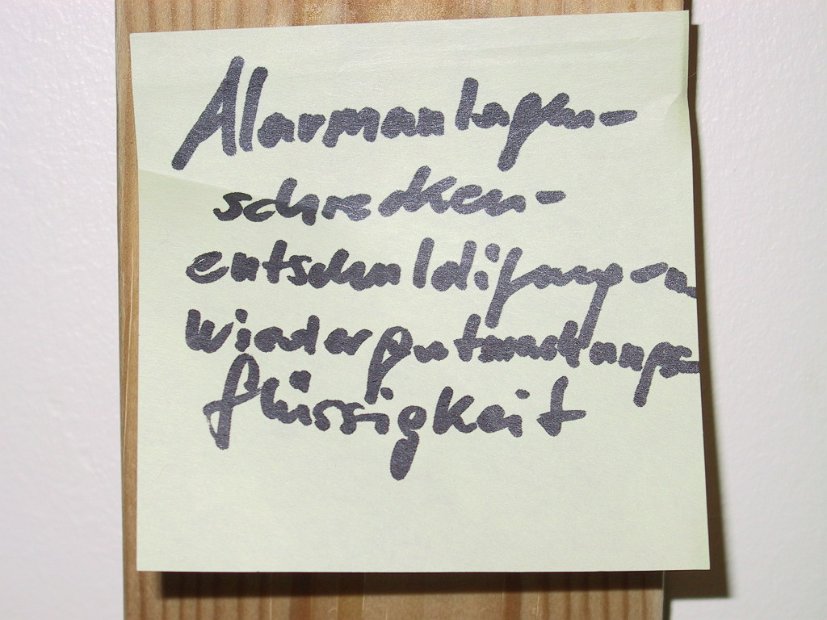 Alarmanlagen-
schrecken-
entschuldigung-u
Wiedergutmachungs-
flüssigkeit